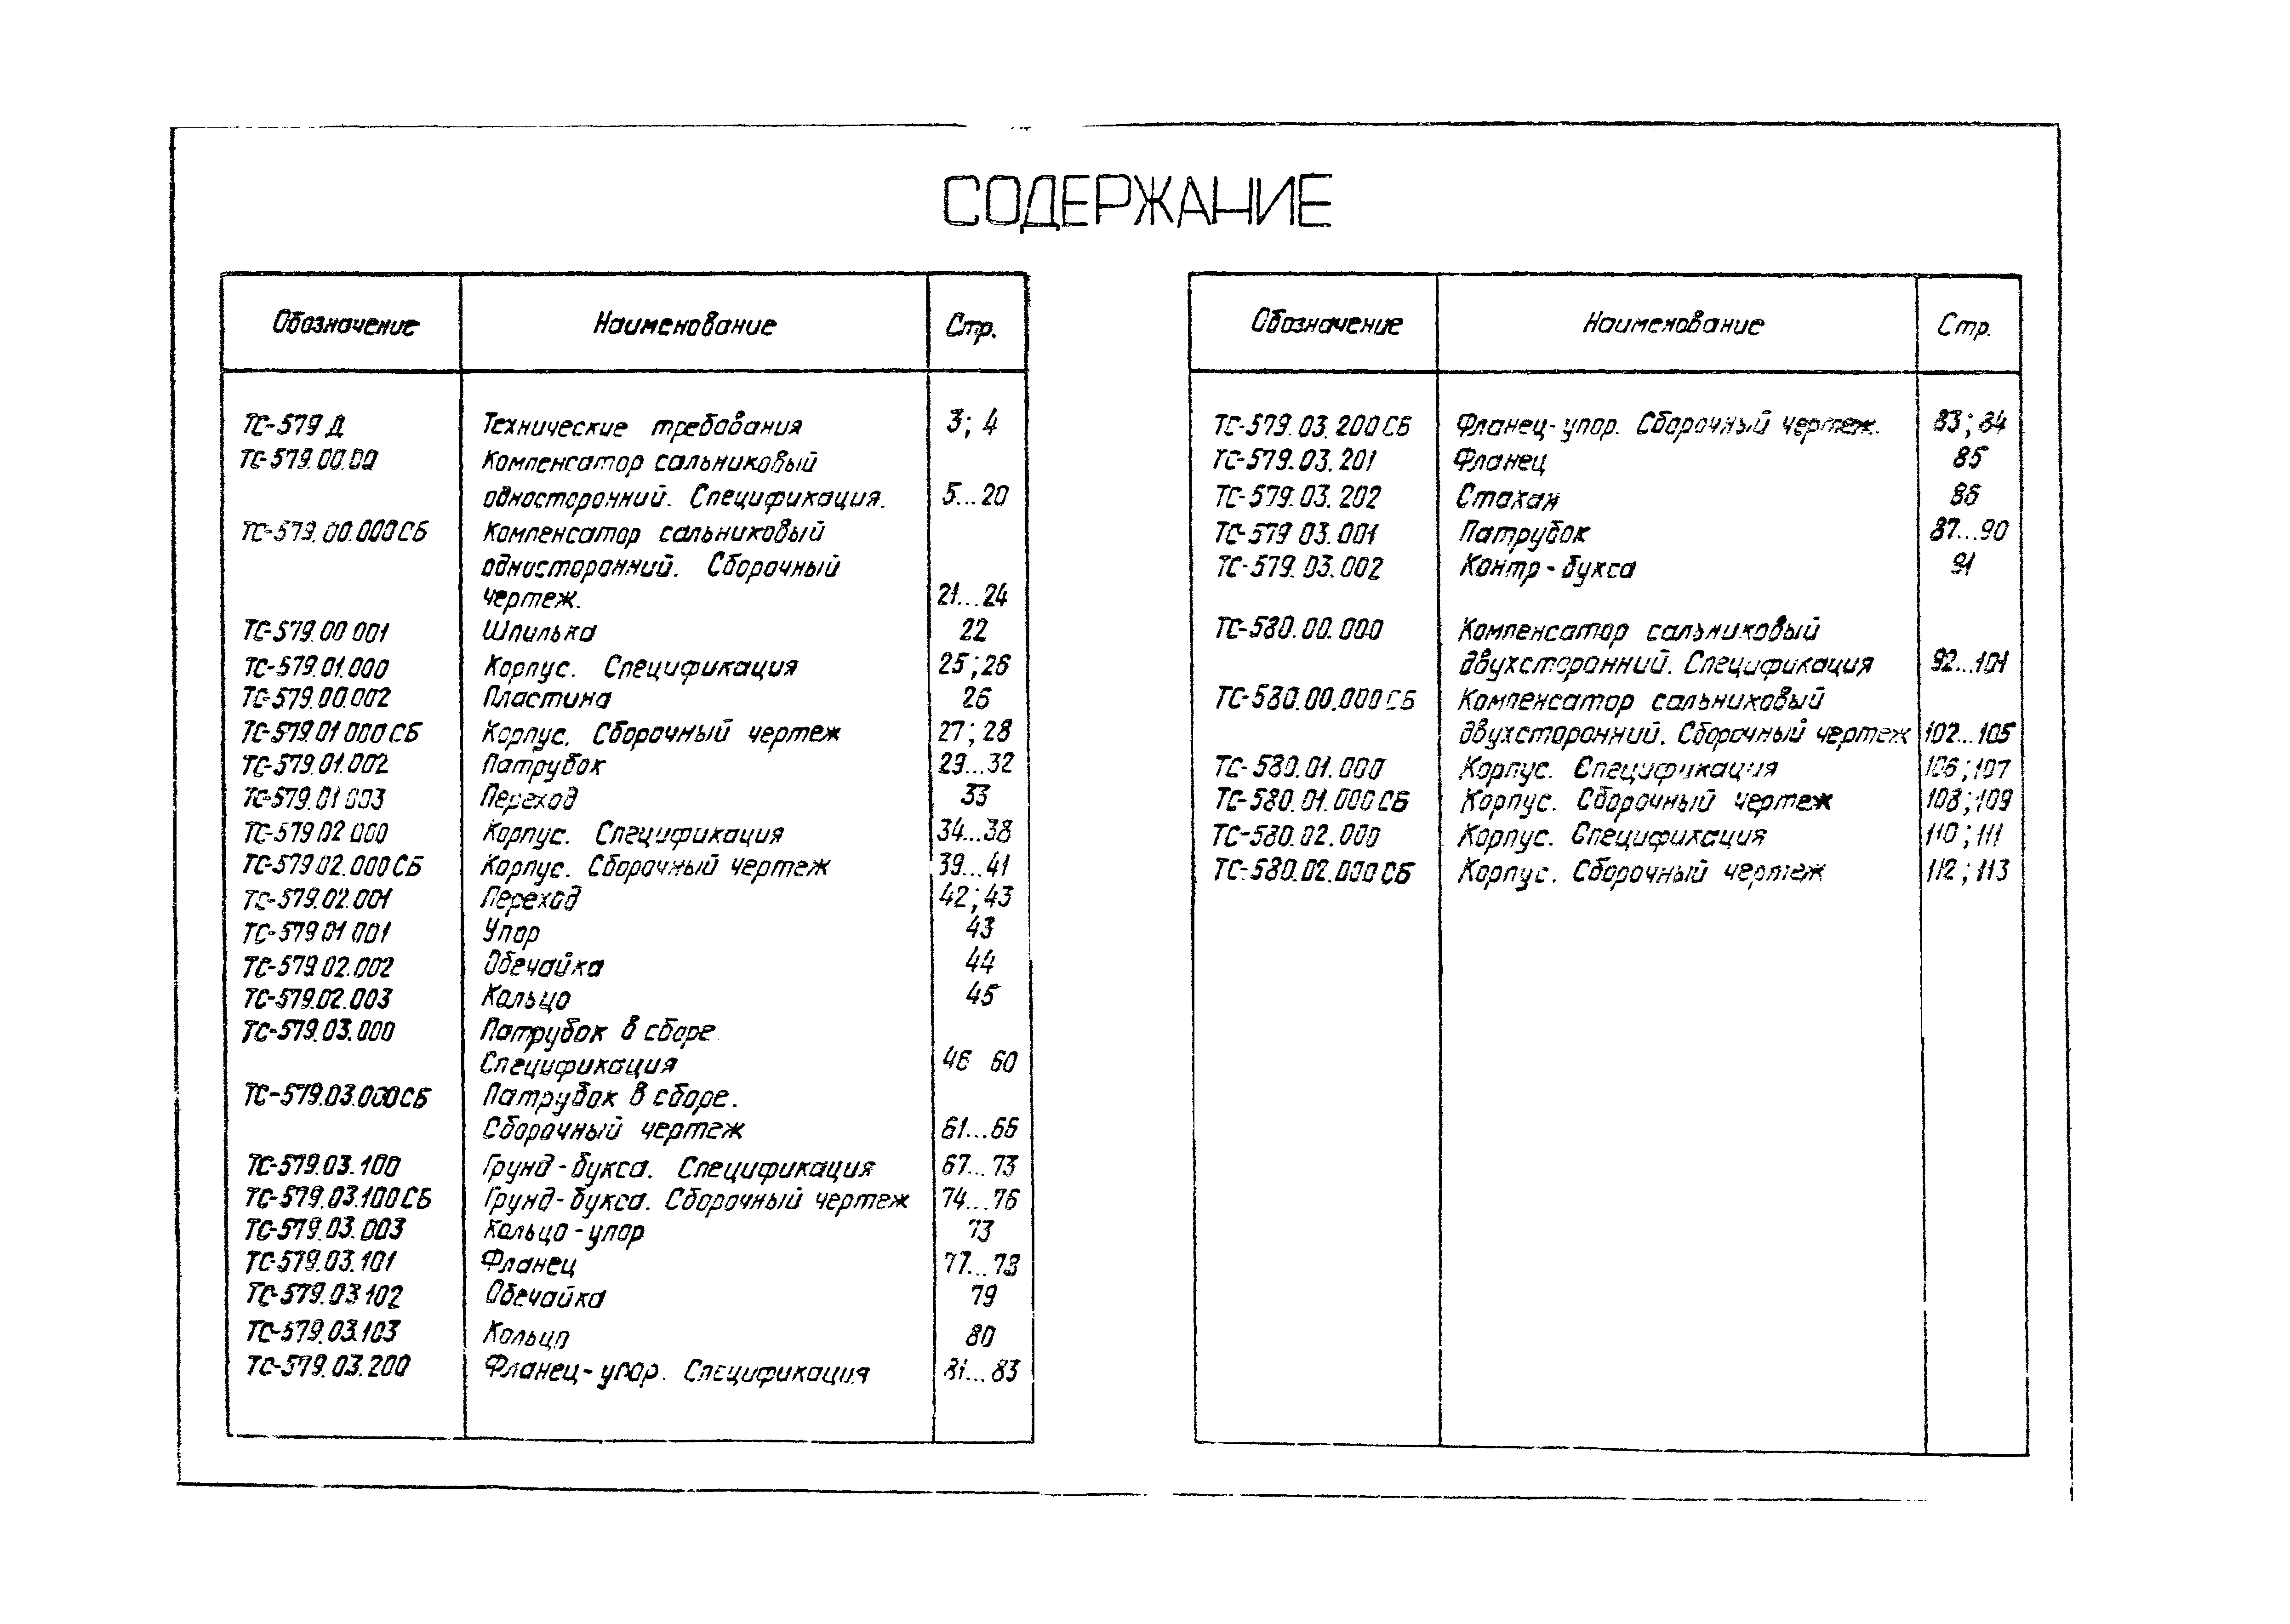 СОДЕРЖАНИЕ
Обозначение Наименование Стр.
ТС-579 Д Технические требования 3; 4
ТС-579.00.00 Компенсатор сальниковый
односторонний. Спецификация. 5...20
ТС-579.00.000СБ Компенсатор сальниковый
односторонний. Сборочный
чертеж. 21...24
ТС-579.00 001 Шпилька 22
ТС-579.01.000 Корпус. Спецификация 25;26
ТС-579.00.002 Пластина 26
ТС-579.01.000СБ Корпус. Сборочный чертеж 27;28
ТС-579.01.002 Патрубок 29...32
ТС-579.01 003 Переход 33
ТС-579 02 000 Корпус. Спецификация 34...38
ТС-579 02.000СБ Корпус. Сборочный чертеж 39...41
ТС-579.02.001 Переход 42;43
ТС-579 01 001 Упор 43
ТС-579.02.002 Обечайка 44
ТС-579.02.003 Кольцо 45
ТС-579.03.000 Патрубок в сборе
Спецификация 46 60
ТС-579.03.000СБ Патрубок в сборе.
Сборочный чертеж 61...66
ТС-579.03.100 Грунд-букса. Спецификация 67...73
ТС-579.03.100СБ Грунд-букса. Сборочный чертеж 74...76
ТС-579.03.003 Кольцо-упор 73
ТС-579.03.101 Фланец 77...78
ТС-579.03 102 Обечайка 79
ТС-579.03.103 Кольцо 80
ТС-579.03.200 Фланец-упор. Спецификация 81...83
Обозначение Наименование Стр.
ТС-579.03.200СБ Фланец-упор. Сборочный чертеж. 83;84
ТС-579.03.201 Фланец 85
ТС-579.03.202 Стакан 86
ТС-579 03.001 Патрубок 87...90
ТС-579.03.002 Контр-букса 91
ТС-580.00.000 Компенсатор сальниковый
двухсторонний. Спецификация 92...101
ТС-580.00.000СБ Компенсатор сальниковый
двухсторонний. Сборочный чертеж 102...105
ТС-580.01.000 Корпус. Спецификация 106;107
ТС-580.01.000СБ Корпус. Сборочный чертеж 108;109
ТС-580.02.000 Корпус. Спецификация 110;111
ТС-580.02.000СБ Корпус. Сборочный чертеж 112;113